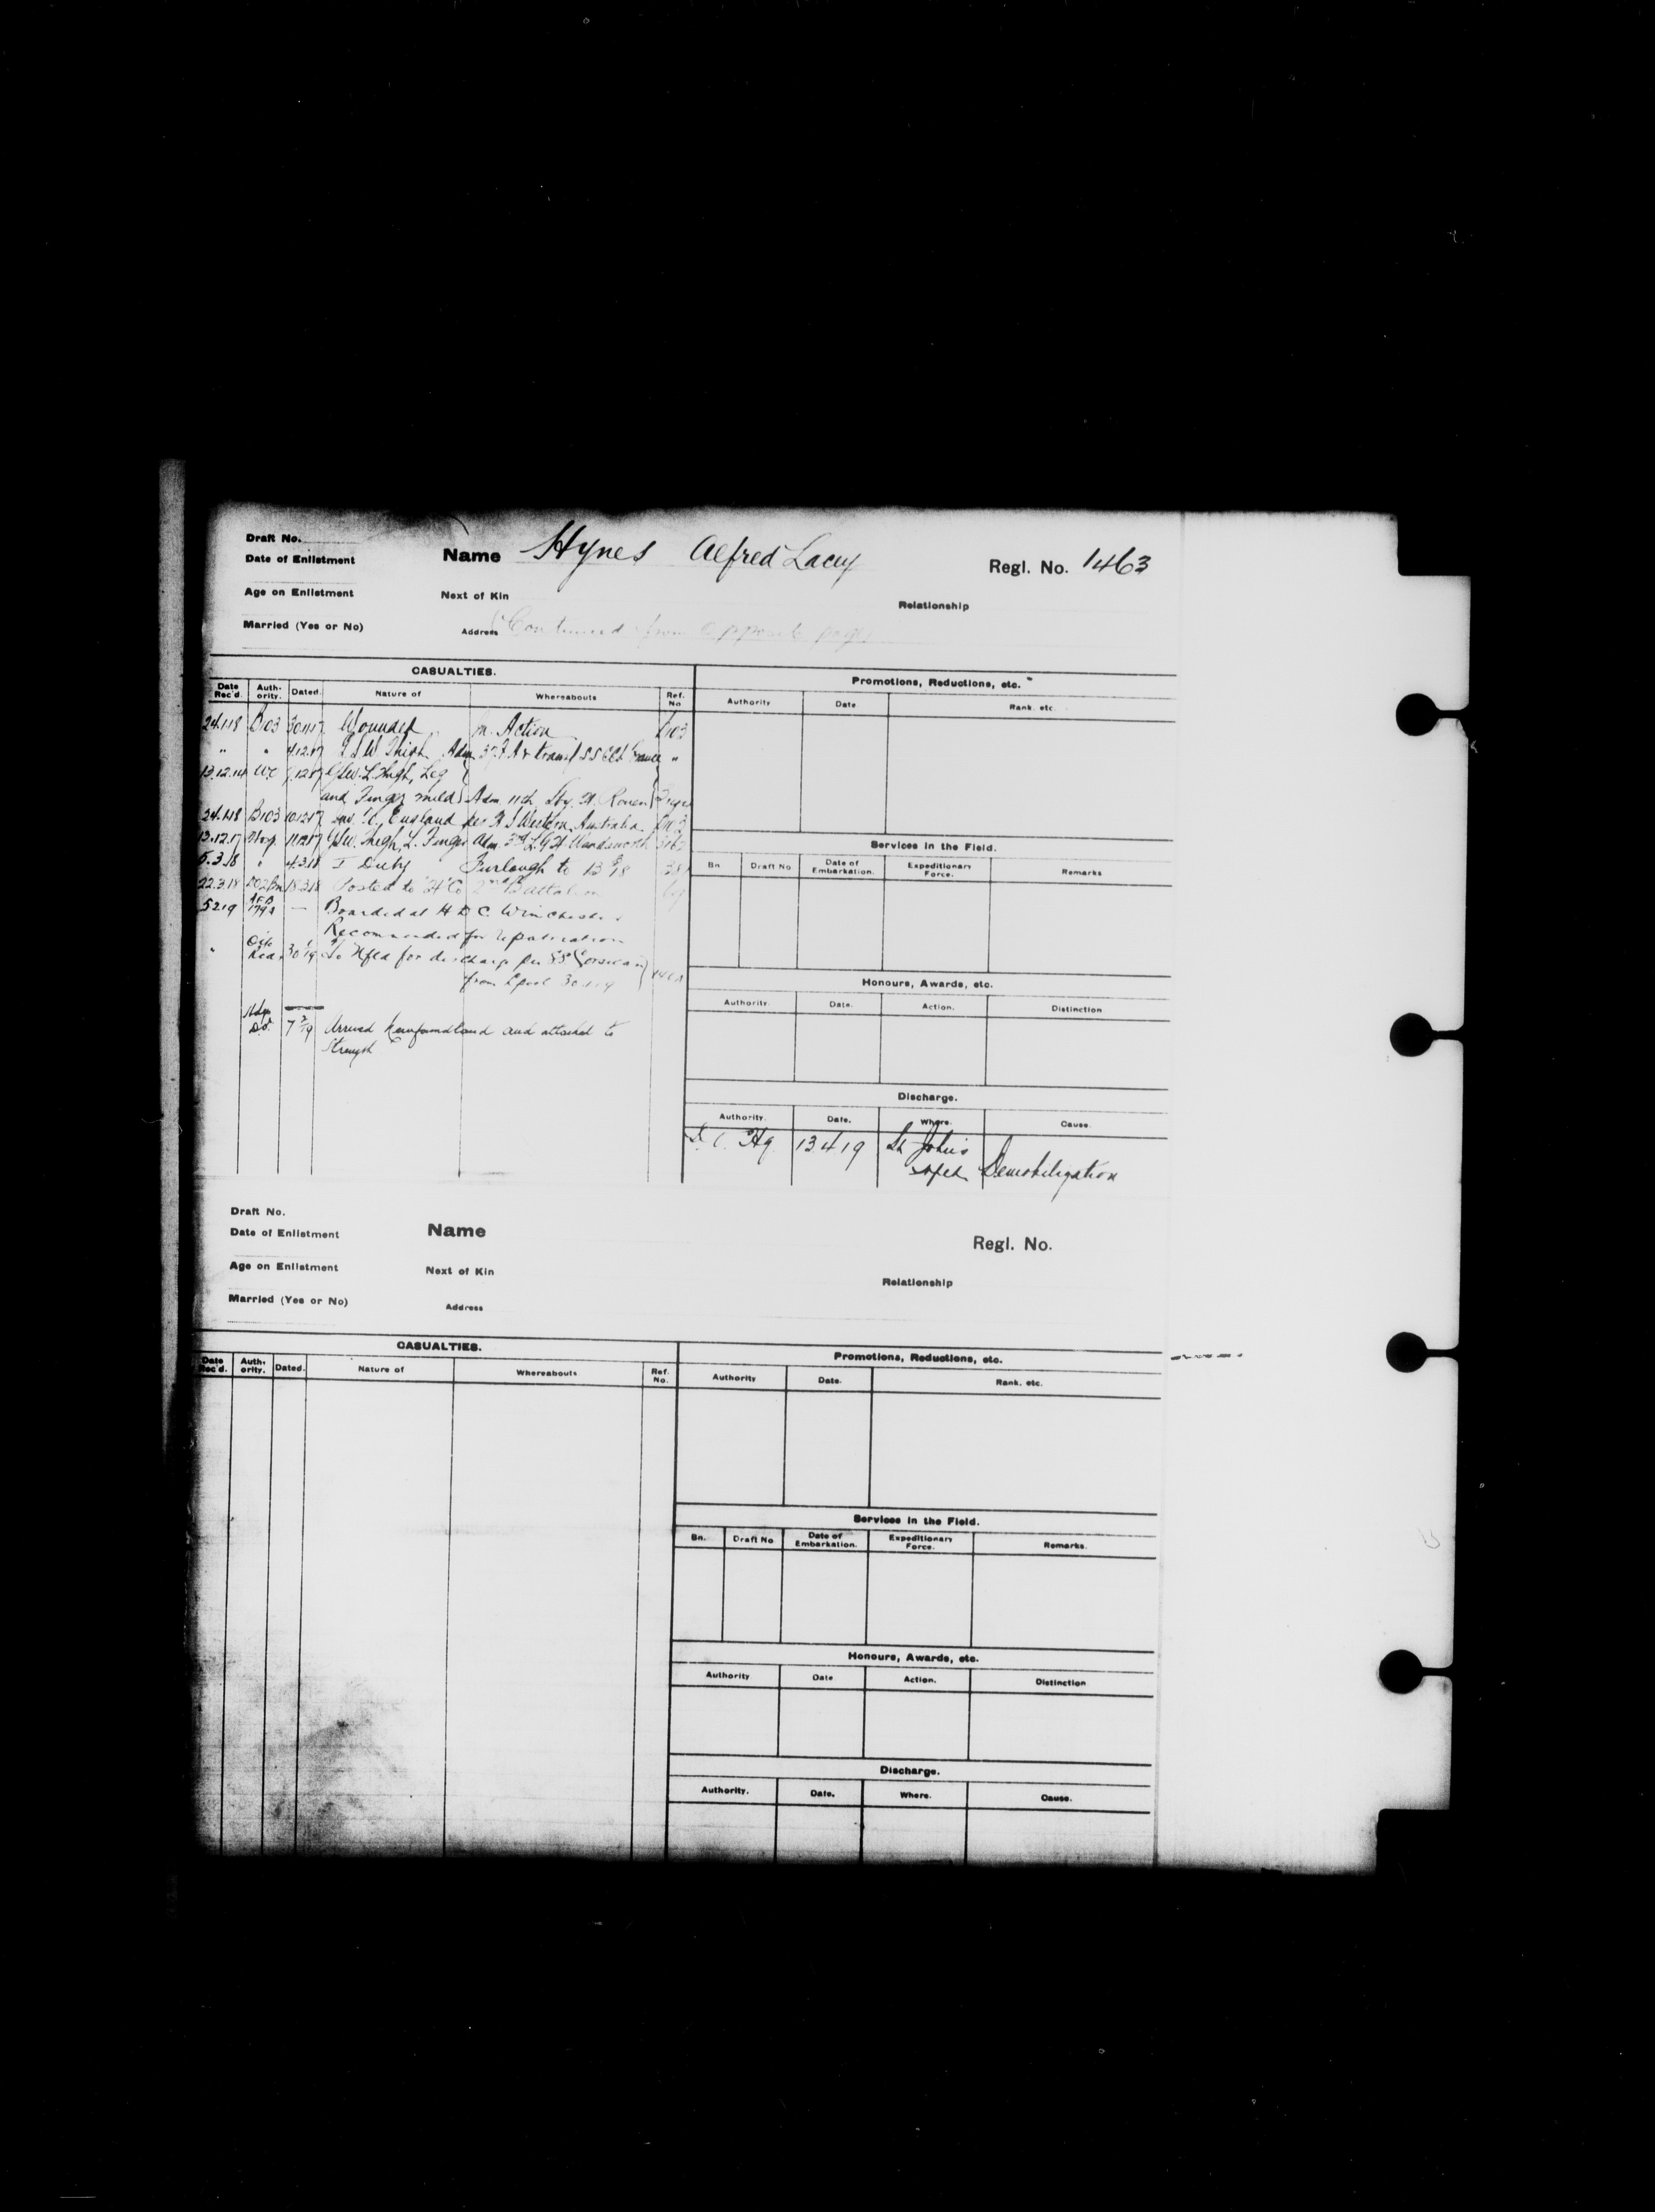 Draft No.
Date of Enlistment
Name Hynes Alfred Lacey
Regl. No. 1463
Age on Enlistment
Next of Kin
Relationship
Married (Yes or No)
Address (Continued from opposite page)
CASUALTIES.
Promotions, Reductions, etc.
Date Rec'd. Auth-ority. Dated. Nature of Whereabouts Ref. No
Authority Date Rank. etc.
24.1.18 B103 30.11.17 Wounded in Action B103
" " 4.12.17 Thigh Adm 37. "
13.12.17 WO G.S.W. L. Thigh, Leg
and Finger mild Adm. 11th Sty. H. Rouen
24.1.18 B103 10.12.17 Inv. to England per H S Western Australia B103
13.12.17 Hosp. 11.12.17 G.S.W. Thigh, L. Finger Adm. 3rd L.G.H. Wandsworth
5.3.18 " 4.3.18 Duty Furlough to 13
22.3.18 18.3.18 Posted to "H" Co 2nd Battalion
5 2 19 — Boarded at H D C. Winchester
Recommended for repatriation
" 30 1/19 To Nfld for discharge per S.S Corsican
from Lpool 30 1 19
7 2/19 Arrived Newfoundland and attached to
Strength
Services in the Field.
Bn Draft No Date of Embarkation. Expeditionary Force. Remarks
Honours, Awards, etc.
Authority. Date. Action. Distinction
Discharge.
Authority. Date. Where. Cause.
Hq. 13 4 19 St John's Demobilization
Nfld.
Draft No.
Date of Enlistment
Name
Regl. No.
Age on Enlistment
Next of Kin
Relationship
Married (Yes or No)
Address
CASUALTIES.
Promotions, Reductions, etc.
Date Rec'd. Auth-ority. Dated. Nature of Whereabouts Ref. No.
Authority Date. Rank. etc.
Services in the Field.
Bn. Draft No Date of Embarkation. Expeditionary Force. Remarks.
Honours, Awards, etc.
Authority Date Action. Distinction
Discharge.
Authority. Date. Where. Cause.